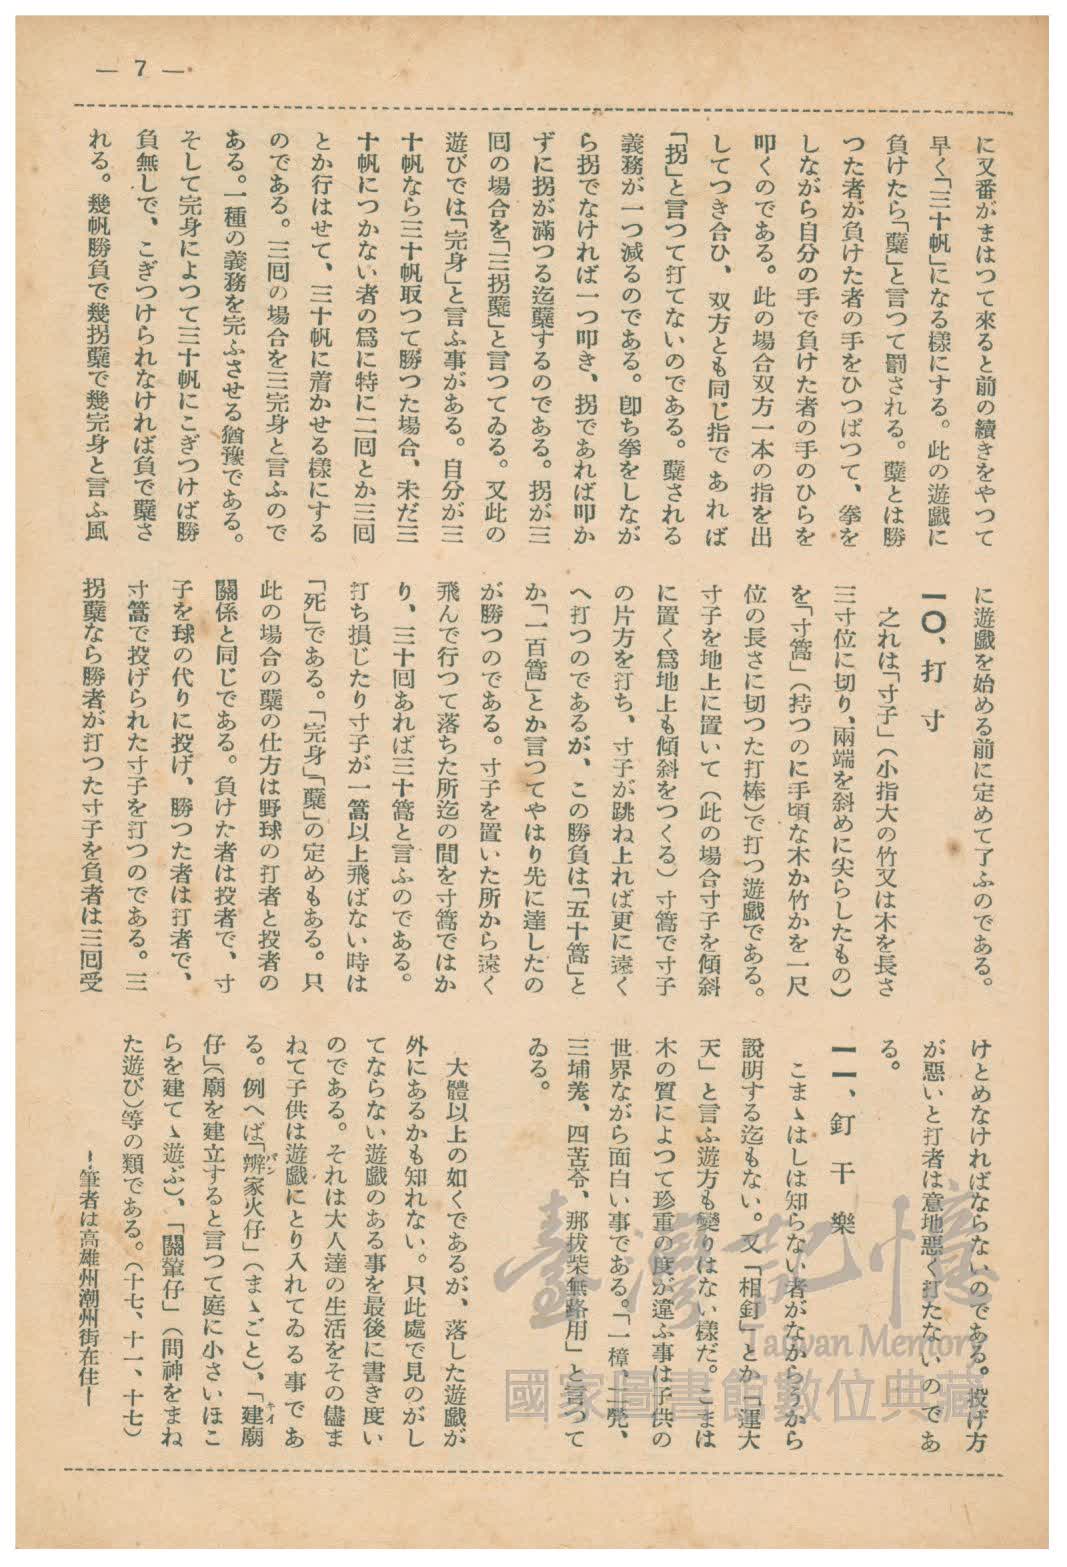 — 7 —
に又番がまはつて來ると前の續きをやつて
早く「三十帆」になる樣にする。此の遊戲に
負けたら「蘖」と言つて罰される。蘖とは勝
つた者が負けた者の手をひつぱつて、拳を
しながら自分の手で負けた者の手のひらを
叩くのである。此の場合双方一本の指を出
してつき合ひ、双方とも同じ指であれば
「拐」と言つて打てないのである。蘖される
義務が一つ減るのである。卽ち拳をしなが
ら拐でなければ一つ叩き、拐であれば叩か
ずに拐が滿つる迄蘖するのである。拐が三
囘の場合を「三拐蘖」と言つてゐる。又此の
遊びでは「完身」と言ふ事がある。自分が三
十帆なら三十帆取つて勝つた場合、未だ三
十帆につかない者の爲に特に二囘とか三囘
とか行はせて、三十帆に着かせる樣にする
のである。三囘の場合を三完身と言ふので
ある。一種の義務を完ふさせる猶豫である。
そして完身によつて三十帆にこぎつけば勝
負無しで、こぎつけられなければ負で蘖さ
れる。幾帆勝負で幾拐蘖で幾完身と言ふ風
に遊戲を始める前に定めて了ふのである。
一〇、打寸
之れは「寸子」（小指大の竹又は木を長さ
三寸位に切り、兩端を斜めに尖らしたもの）
を「寸篙」（持つのに手頃な木か竹かを一尺
位の長さに切つた打棒）で打つ遊戲である。
寸子を地上に置いて（此の場合寸子を傾斜
に置く爲地上も傾斜をつくる）寸篙で寸子
の片方を打ち、寸子が跳ね上れば更に遠く
へ打つのであるが、この勝負は「五十篙」と
か「一百篙」とか言つてやはり先に達したの
が勝つのである。寸子を置いた所から遠く
飛んで行つて落ちた所迄の間を寸篙ではか
り、三十囘あれば三十篙と言ふのである。
打ち損じたり寸子が一篙以上飛ばない時は
「死」である。「完身」「蘖」の定めもある。只
此の場合の蘖の仕方は野球の打者と投者の
關係と同じである。負けた者は投者で、寸
子を球の代りに投げ、勝つた者は打者で、
寸篙で投げられた寸子を打つのである。三
拐蘖なら勝者が打つた寸子を負者は三囘受
けとめなければならないのである。投げ方
が惡いと打者は意地惡く打たないのであ
る。
一一、釘干樂
こまゝはしは知らない者がなからうから
說明する迄もない。又「相釘」とか「運大
天」と言ふ遊方も變りはない樣だ。こまは
木の質によつて珍重の度が違ふ事は子供の
世界ながら面白い事である。「一樟、二凳、
三埔羌、四苦苓、那拔柴無路用」と言つて
ゐる。
大體以上の如くであるが、落した遊戲が
外にあるかも知れない。只此處で見のがし
てならない遊戲のある事を最後に書き度い
のである。それは大人達の生活をその儘ま
ねて子供は遊戲にとり入れてゐる事であ
る。例へば「辨家火仔」（まゝごと）、「建廟
仔」（廟を建立すると言つて庭に小さいほこ
らを建てゝ遊ぶ）、「關輦仔」（問神をまね
た遊び）等の類である。（十七、十一、十七）
―筆者は高雄州潮州街在住―
臺灣記憶
Taiwan Memory
國家圖書館數位典藏